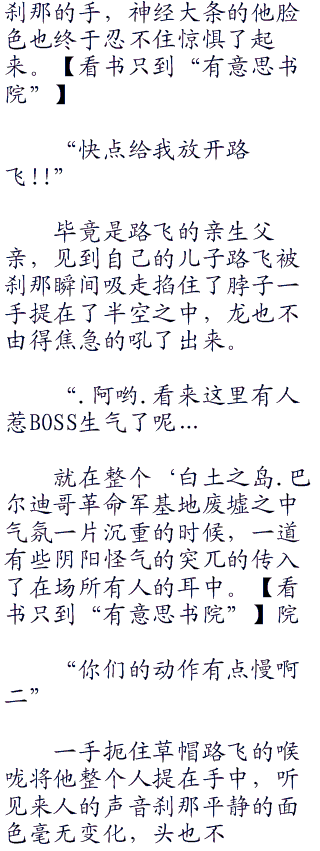 刹那的手，神经大条的他脸
色也终于忍不住惊惧了起
来。【看书只到“有意思书
院”】
“快点给我放开路
飞!!”
毕竟是路飞的亲生父
亲，见到自己的儿子路飞被
刹那瞬间吸走掐住了脖子一
手提在了半空之中，龙也不
由得焦急的吼了出来。
“.阿哟.看来这里有人
惹BOSS生气了呢…
就在整个‘白土之岛.巴
尔迪哥革命军基地废墟之中
气氛一片沉重的时候，一道
有些阴阳怪气的突兀的传入
了在场所有人的耳中。【看
书只到“有意思书院”】院
“你们的动作有点慢啊
二”
一手扼住草帽路飞的喉
咙将他整个人提在手中，听
见来人的声音刹那平静的面
色毫无变化，头也不